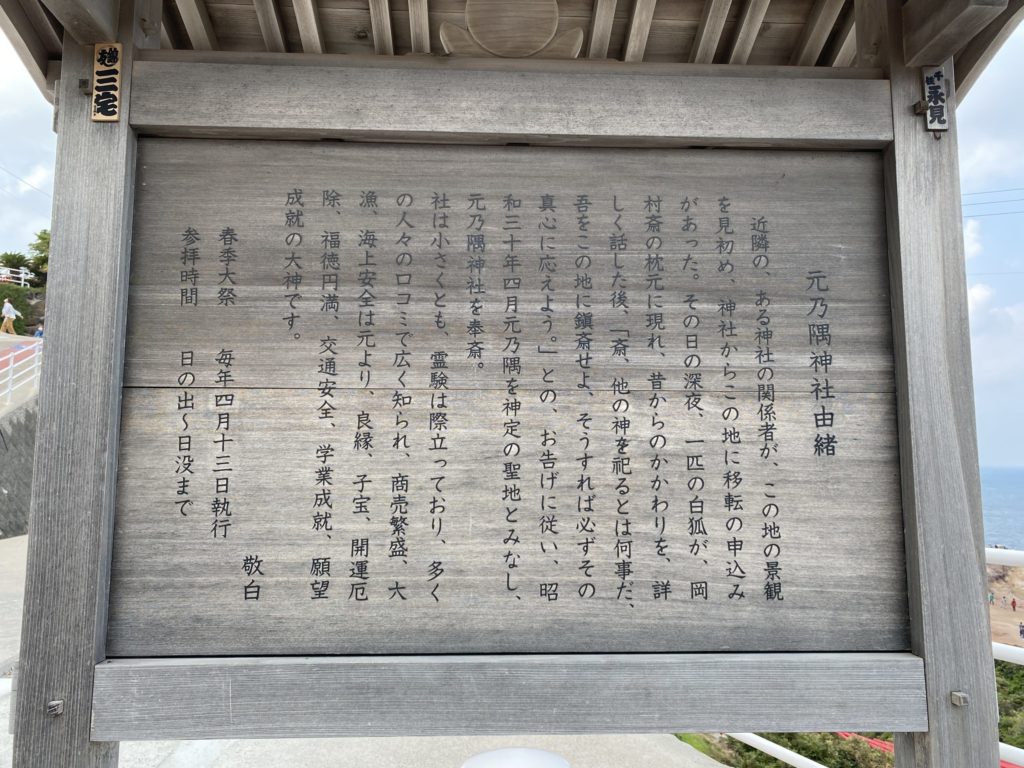 元乃隅神社由緒
近隣の、ある神社の関係者が、この地の景観
を見初め、神社からこの地に移転の申込み
があった。その日の深夜、一匹の白狐が、岡
村斎の枕元に現れ、昔からのかかわりを、詳
しく話した後、「斎、他の神を祀るとは何事だ、
吾をこの地に鎮斎せよ、そうすれば必ずその
真心に応えよう。」との、お告げに従い、昭
和三十年四月元乃隅を神定の聖地とみなし、
元乃隅神社を奉斎。
社は小さくとも、霊験は際立っており、多く
の人々の口コミで広く知られ、商売繁盛、大
漁、海上安全は元より、良縁、子宝、開運厄
除、福徳円満、交通安全、学業成就、願望
成就の大神です。
敬白
春季大祭 毎年四月十三日執行
参拝時間 日の出〜日没まで
三宅
千社
永見